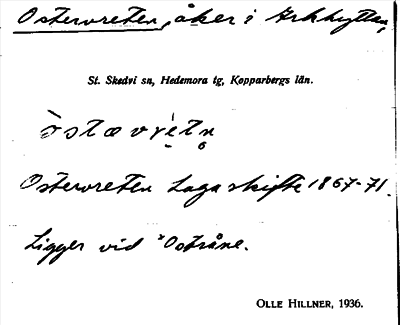 Ostervreten, åker i Arkhyttan,
St. Skedvi sn, Hedemora tg, Kopparbergs län.
òstævrètn
Ostervreten Laga skifte 1867-71.
Ligger vid Ostråne.
OLLE HILLNER, 1936.